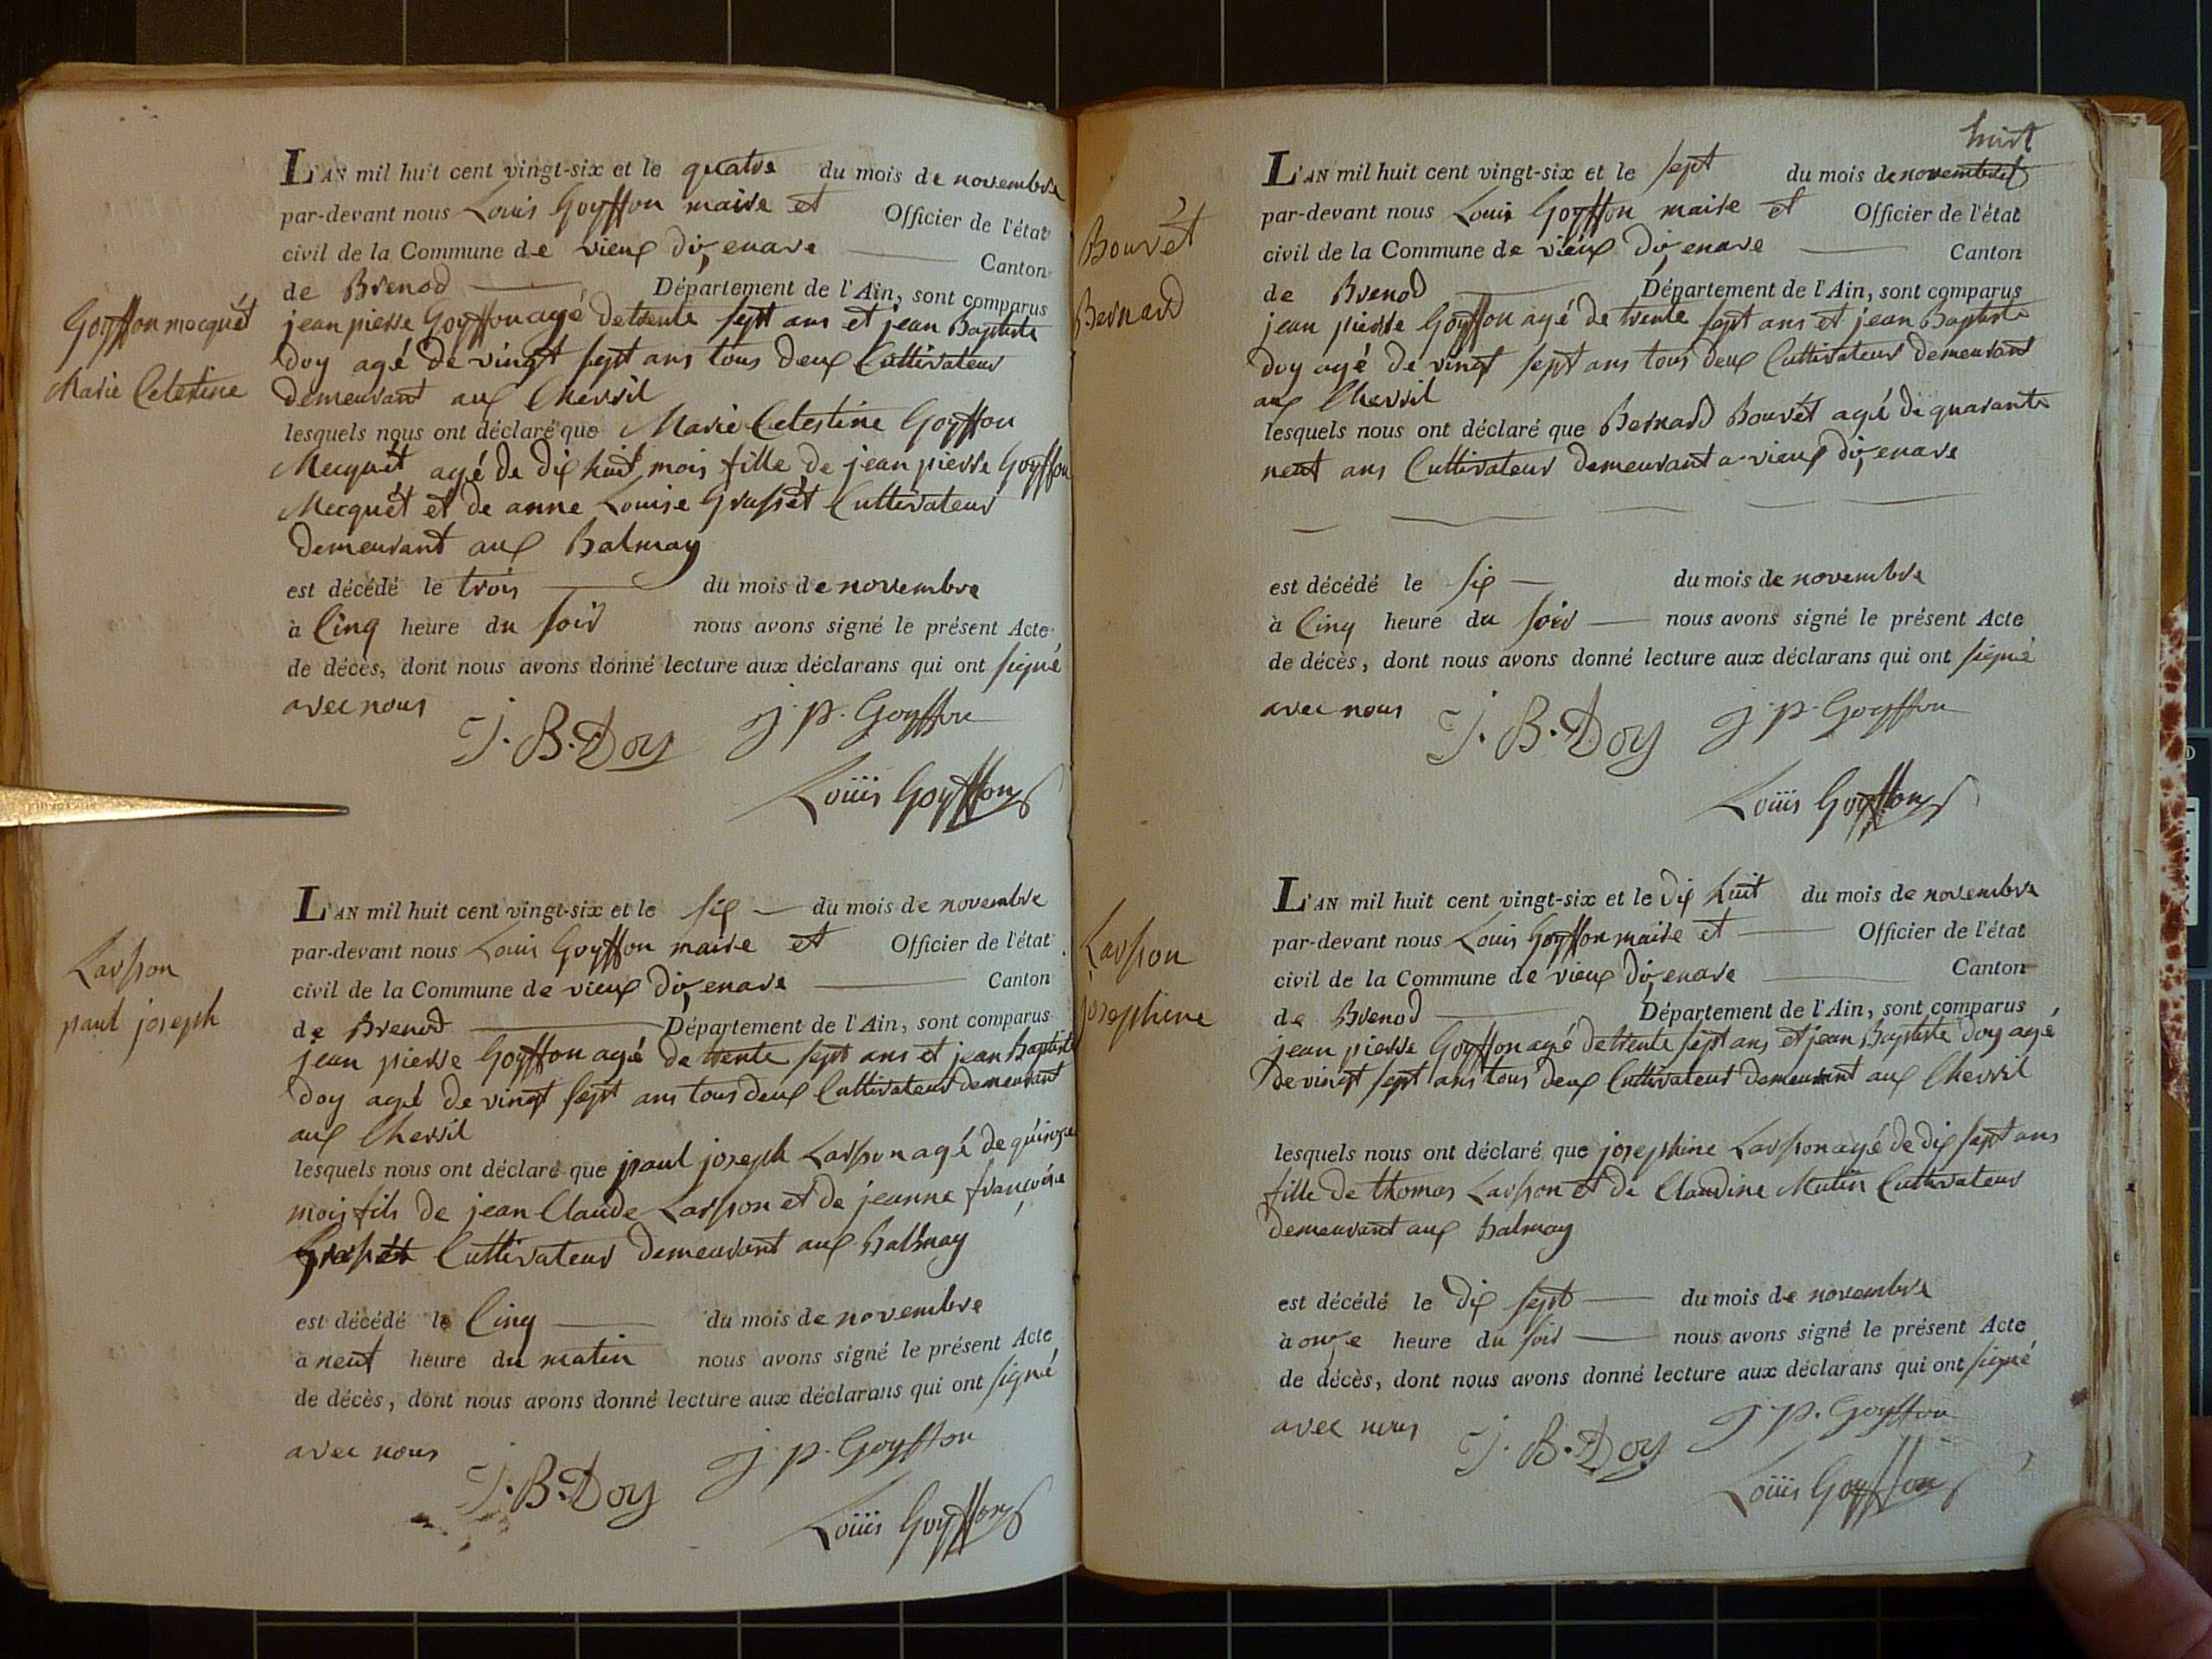 L'AN mil huit cent vingt-six et le quatre du mois de novembre
par-devant nous Louis Goyffon maire et Officier de l'état
civil de la Commune de vieux d'izenave Canton
de Brenod Département de l'Ain, sont comparus
Goyffon mocquét
jean pierre Goyffon agé de trente sept ans et jean Baptiste
Doy agé de vingt sept ans tous deux Cultivateur
Marie Celestine
demeurant aux Chevril
lesquels nous ont déclaré que Marie Celestine Goyffon
Mecquét agé de dix huit mois fille de jean pierre Goyffon
Mecquét et de anne Louise Grassét Cultivateur
demeurant aux Balmay
est décédé le trois du mois de novembre
à Cinq heure du soir nous avons signé le présent Acte
de décès, dont nous avons donné lecture aux déclarans qui ont signé
avec nous
J. B. Doy j. p. Goyffon
Louis Goyffon
L'AN mil huit cent vingt-six et le six du mois de novembre
par-devant nous Louis Goyffon maire et Officier de l'état
Larsson
civil de la Commune de vieux d'izenave Canton
paul joseph
de Brenod Département de l'Ain, sont comparus
jean pierre Goyffon agé de trente sept ans et jean Baptiste
Doy agé de vingt sept ans tous deux Cultivateur demeurant
aux Chevril
lesquels nous ont déclaré que paul joseph Larsson agé de quinze
mois fils de jean Claude Larsson et de jeanne françoise
Grassét Cultivateur demeurant aux Balmay
est décédé le Cinq du mois de novembre
à neuf heure du matin nous avons signé le présent Acte
de décès, dont nous avons donné lecture aux déclarans qui ont signé
avec nous
J. B. Doy j. p. Goyffon
Louis Goyffon
huit
L'AN mil huit cent vingt-six et le sept du mois de novembre
par-devant nous Louis Goyffon maire et Officier de l'état
Bouvét
civil de la Commune de vieux d'izenave Canton
Bernard
de Brenod Département de l'Ain, sont comparus
jean pierre Goyffon agé de trente sept ans et jean Baptiste
Doy agé de vingt sept ans tous deux Cultivateur demeurant
aux Chevril
lesquels nous ont déclaré que Bernard Bouvét agé de quarante
neuf ans Cultivateur demeurant a vieux d'izenave
est décédé le six du mois de novembre
à Cinq heure du soir nous avons signé le présent Acte
de décès, dont nous avons donné lecture aux déclarans qui ont signé
avec nous
J. B. Doy j. p. Goyffon
Louis Goyffon
L'AN mil huit cent vingt-six et le dix huit du mois de novembre
par-devant nous Louis Goyffon maire et Officier de l'état
Larsson
civil de la Commune de vieux d'izenave Canton
josephine
de Brenod Département de l'Ain, sont comparus
jean pierre Goyffon agé de trente sept ans et jean Baptiste Doy agé
de vingt sept ans tous deux Cultivateur demeurant aux Chevril
lesquels nous ont déclaré que josephine Larsson agé de dix sept ans
fille de thomas Larsson et de Claudine Mutin Cultivateur
demeurant aux Balmay
est décédé le dix sept du mois de novembre
à onze heure du soir nous avons signé le présent Acte
de décès, dont nous avons donné lecture aux déclarans qui ont signé
avec nous
J. B. Doy j. p. Goyffon
Louis Goyffon